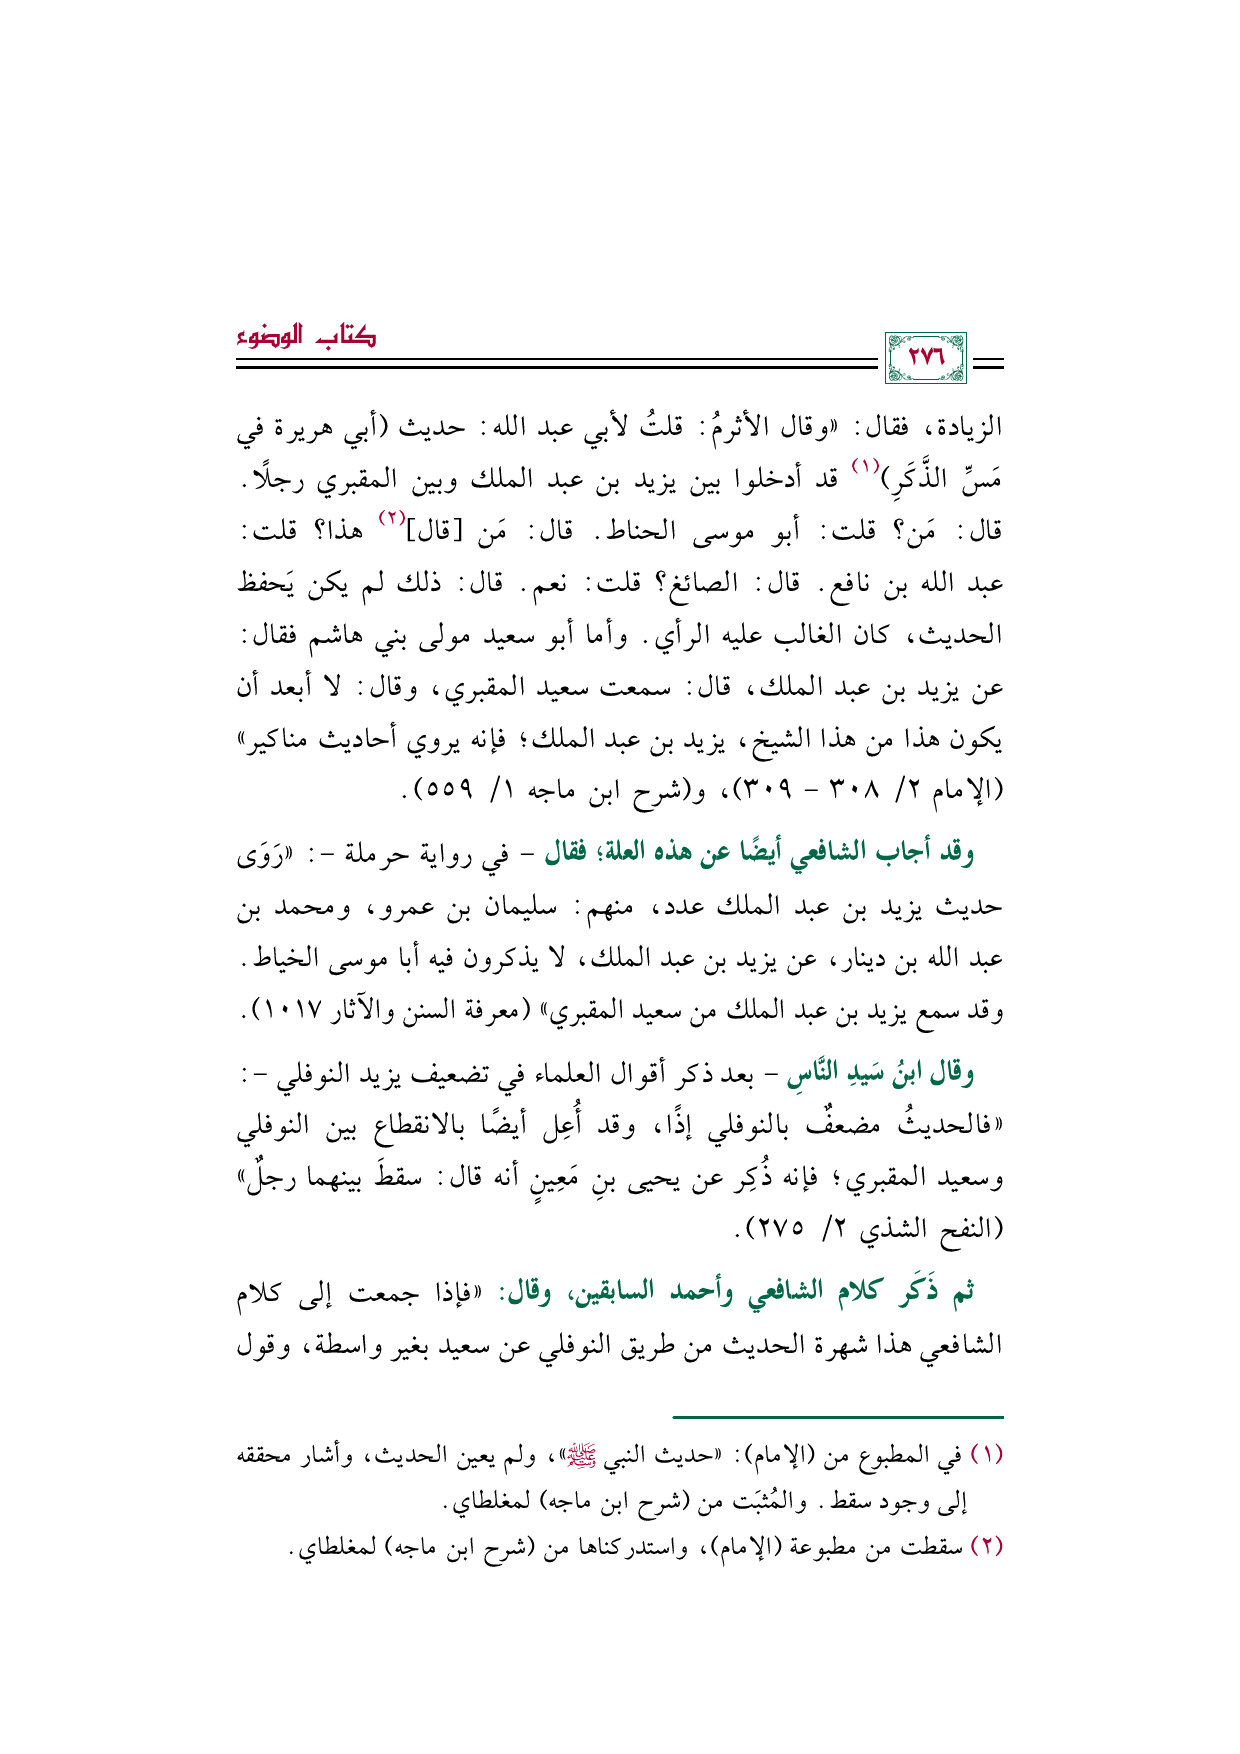 كتاب الوضوء
٢٧٦
الزيادة، فقال: «وقال الأثرمُ: قلتُ لأبي عبد الله: حديث (أبي هريرة في
مَسِّ الذَّكَرِ)(١) قد أدخلوا بين يزيد بن عبد الملك وبين المقبري رجلًا.
قال: مَن؟ قلت: أبو موسى الحناط. قال: مَن [قال](٢) هذا؟ قلت:
عبد الله بن نافع. قال: الصائغ؟ قلت: نعم. قال: ذلك لم يكن يَحفظ
الحديث، كان الغالب عليه الرأي. وأما أبو سعيد مولى بني هاشم فقال:
عن يزيد بن عبد الملك، قال: سمعت سعيد المقبري، وقال: لا أبعد أن
يكون هذا من هذا الشيخ، يزيد بن عبد الملك؛ فإنه يروي أحاديث مناكير»
(الإمام ٢/ ٣٠٨ - ٣٠٩)، و(شرح ابن ماجه ١/ ٥٥٩).
وقد أجاب الشافعي أيضًا عن هذه العلة؛ فقال - في رواية حرملة -: «رَوَى
حديث يزيد بن عبد الملك عدد، منهم: سليمان بن عمرو، ومحمد بن
عبد الله بن دينار، عن يزيد بن عبد الملك، لا يذكرون فيه أبا موسى الخياط.
وقد سمع يزيد بن عبد الملك من سعيد المقبري» (معرفة السنن والآثار ١٠١٧).
وقال ابنُ سَيدِ النَّاسِ - بعد ذكر أقوال العلماء في تضعيف يزيد النوفلي -:
«فالحديثُ مضعفٌ بالنوفلي إذًا، وقد أُعِل أيضًا بالانقطاع بين النوفلي
وسعيد المقبري؛ فإنه ذُكِر عن يحيى بنِ مَعِينٍ أنه قال: سقطَ بينهما رجلٌ»
(النفح الشذي ٢/ ٢٧٥).
ثم ذَكَر كلام الشافعي وأحمد السابقين، وقال: «فإذا جمعت إلى كلام
الشافعي هذا شهرة الحديث من طريق النوفلي عن سعيد بغير واسطة، وقول
(١) في المطبوع من (الإمام): «حديث النبي ﷺ»، ولم يعين الحديث، وأشار محققه
إلى وجود سقط. والمُثبَت من (شرح ابن ماجه) لمغلطاي.
(٢) سقطت من مطبوعة (الإمام)، واستدركناها من (شرح ابن ماجه) لمغلطاي.